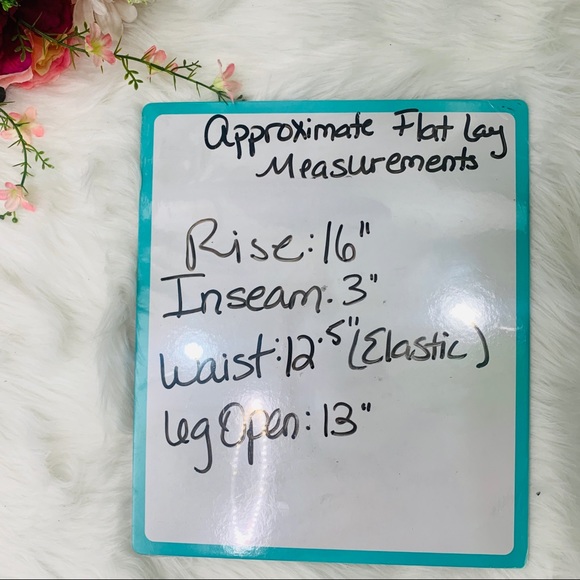 Approximate Flat Lay
Measurements
Rise: 16"
Inseam. 3"
Waist: 12.5" (Elastic)
Leg Open: 13"